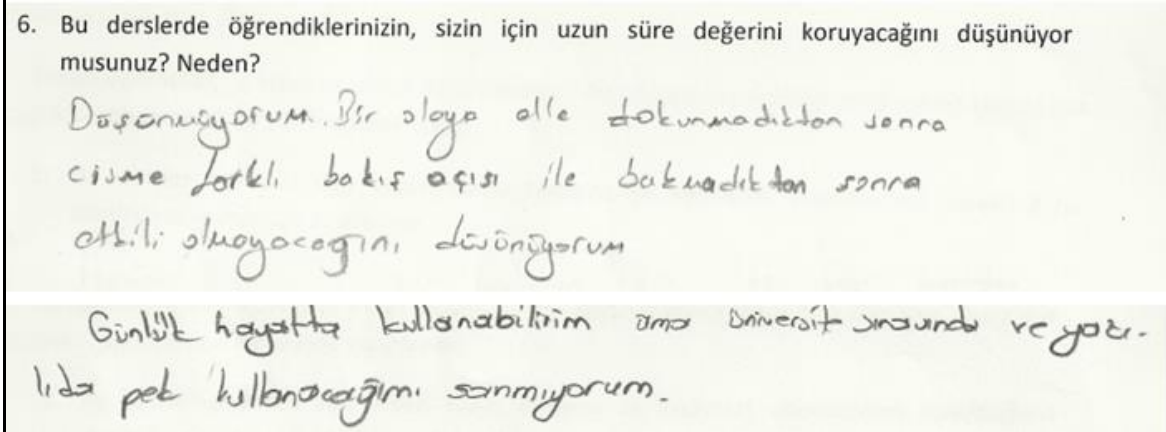 6. Bu derslerde öğrendiklerinizin, sizin için uzun süre değerini koruyacağını düşünüyor
musunuz? Neden?
Düşünüyorum. Bir olaya elle dokunmadıktan sonra
cisme farklı bakış açısı ile bakmadıktan sonra
etkili olmayacağını düşünüyorum
Günlük hayatta kullanabilirim ama üniversite sınavında ve yazı-
lıda pek kullanacağımı sanmıyorum.